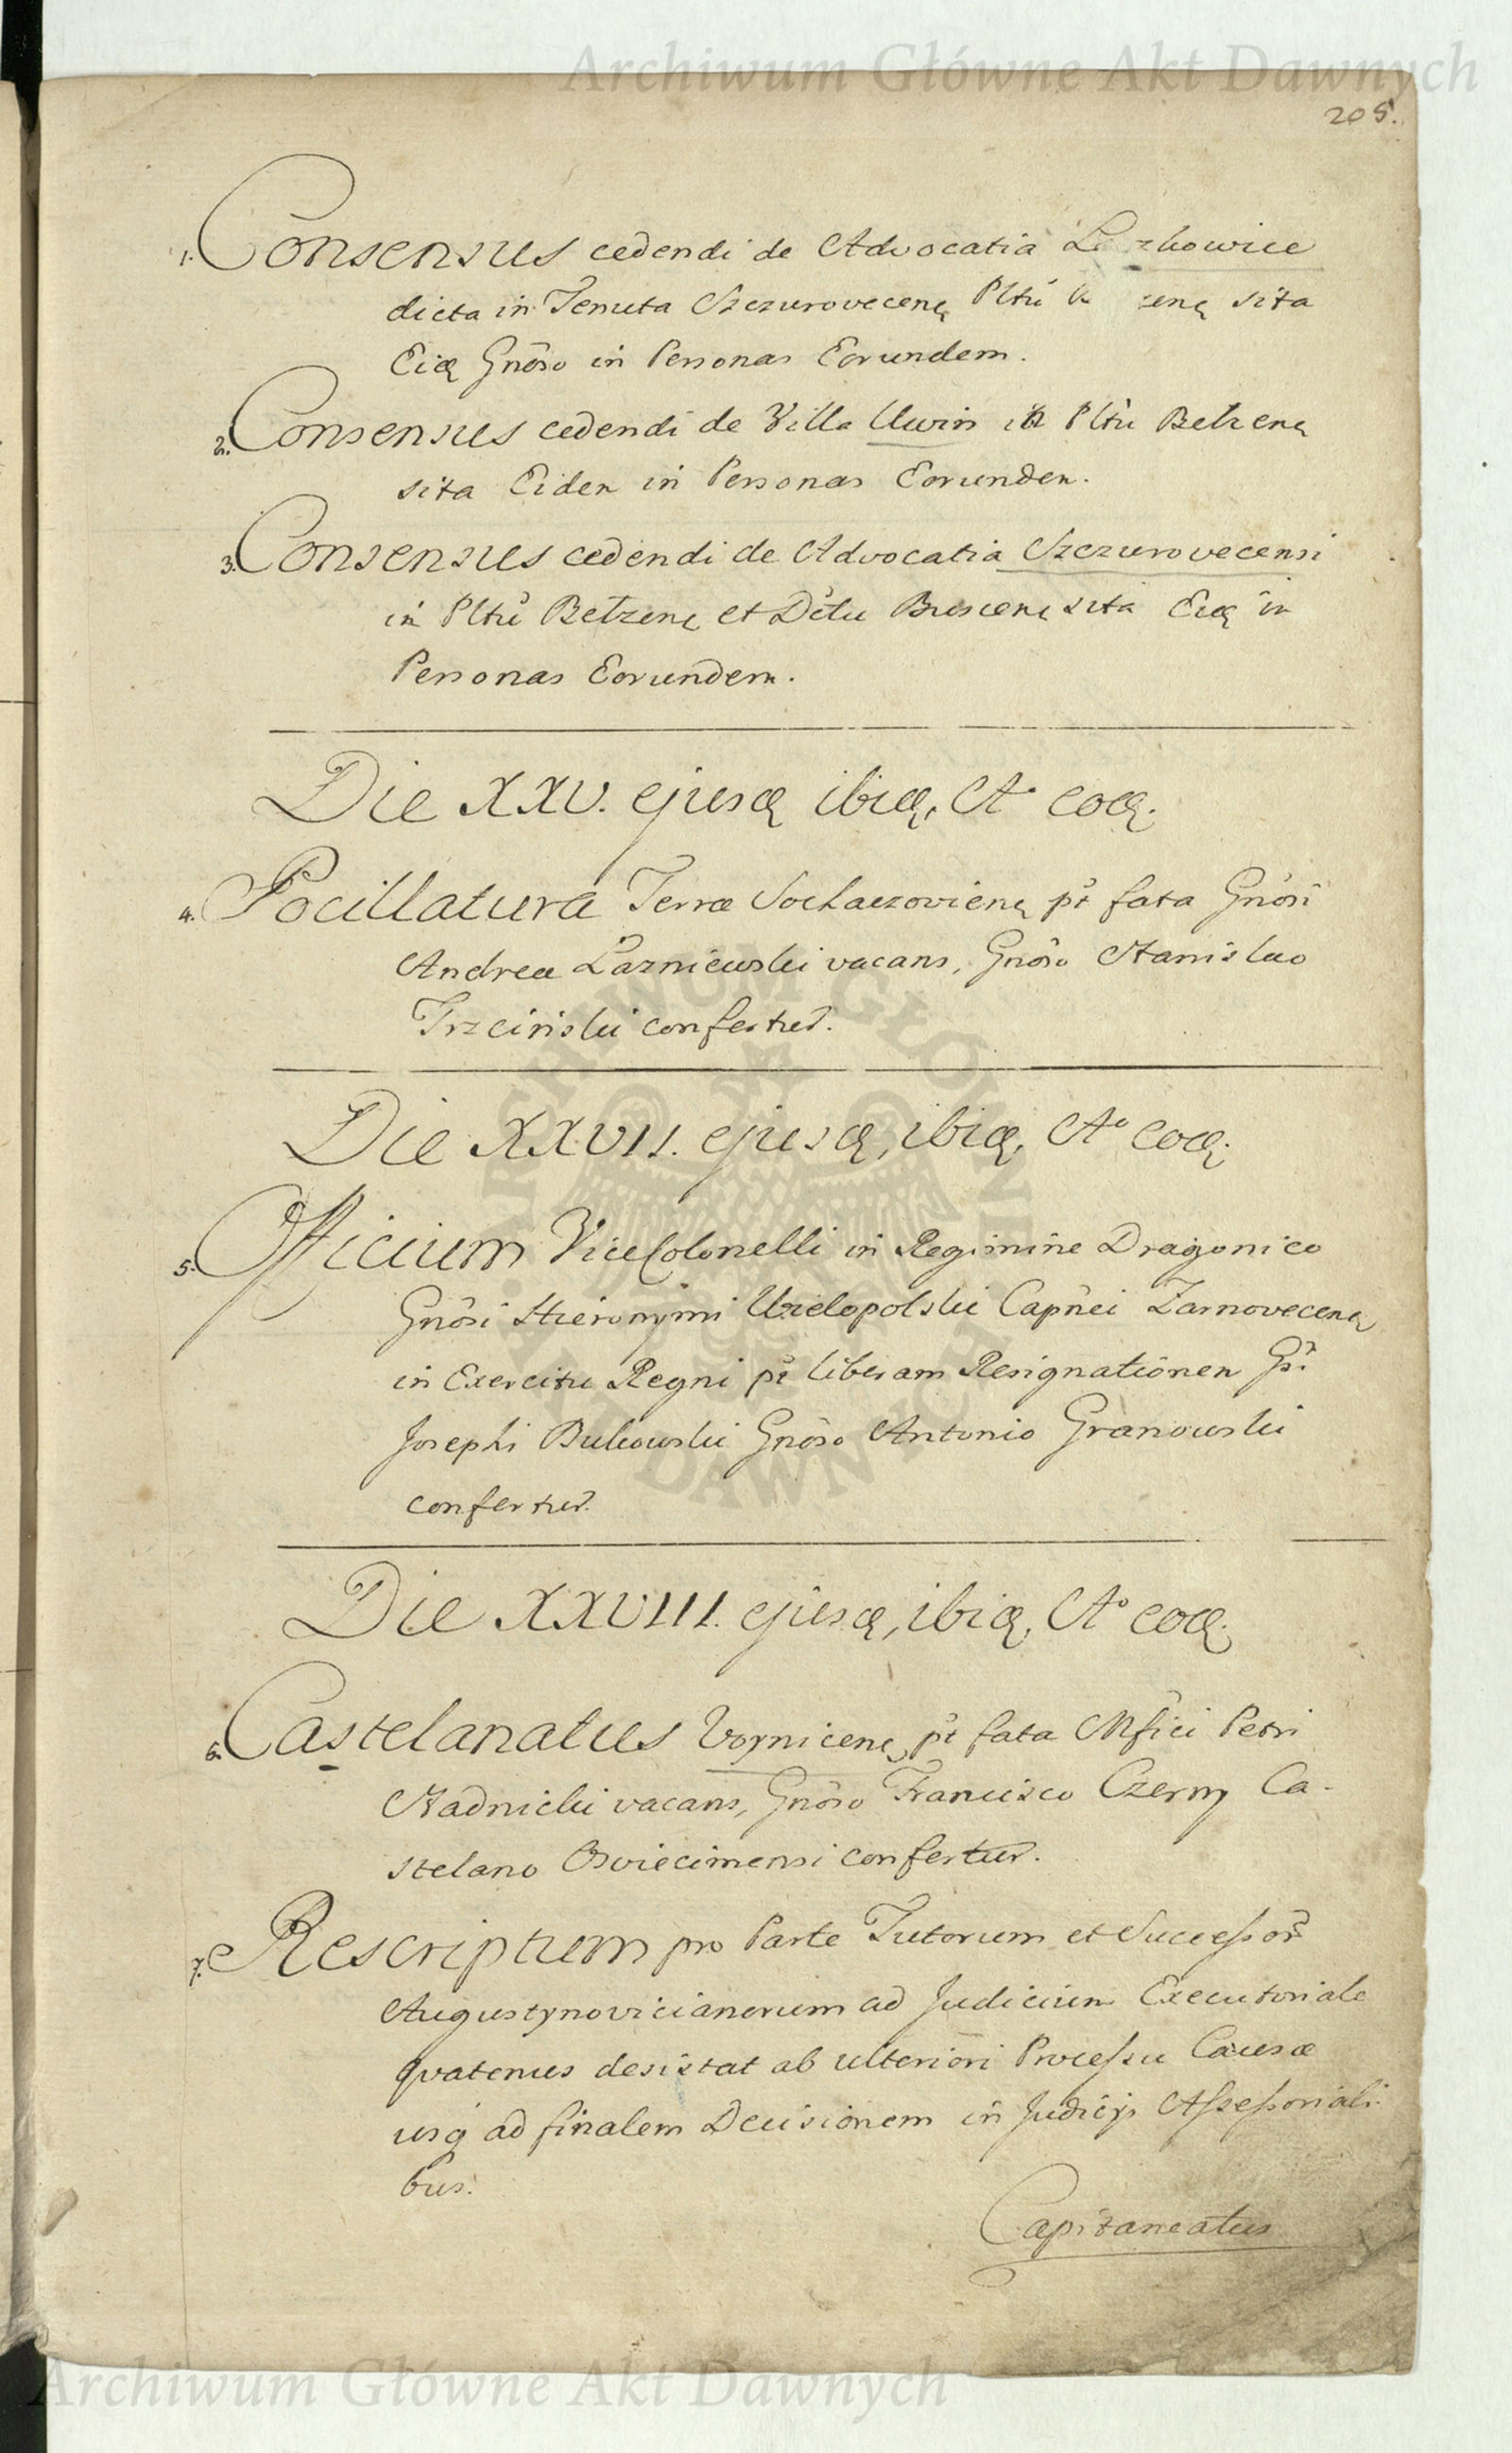 Archiwum Główne Akt Dawnych
205.
1. Consensus cedendi de Advocatia
dicta in Tenuta Szczurovecenę Pltű sita
Eidę Gnőso in Personas Eorundem.
2. Consensus cedendi de Villa Uwin in Pltű Belzenę
sita Eidem in Personas Eorundem.
3. Consensus cedendi de Advocatia Szczurovecensi
in Pltű Belzenę et Dčtu Buscenę sita Eidę in
Personas Eorundem.
Die XXV. ejusdę ibidę, Aº eodę.
4. Pocillatura Terræ Sochaczovienę pt fata Gnősi
Andreæ Łazniewski vacans, Gnőso Stanislao
Trzciński confertur.
Die XXVII. ejusdę, ibidę, Aº eodę.
5. Officium ViceColonelli in Regimine Dragonico
Gnősi Hieronymi Wielopolski Capnei Zarnovecenę
in Exercitu Regni pt liberam Resignationem Gsi
Josephi Bukowski Gnőso Antonio Granowski
confertur.
Die XXVIII. ejusdę, ibidę, Aº eodę.
6. Castelanatus Voynicenę pt fata Mfici Petri
Stadnicki vacans, Gnőso Francisco Czerny Ca-
stelano Osviecimensi confertur.
7. Rescriptum pro Parte Tutorum et Successor
Augustynovicianorum ad Judicium Executoriale
qvatenus desistat ab ulteriori Processu Causæ
usq ad finalem Decisionem in Judicijs Assessoriali-
bus.
Capitaneatus
ARCHIWUM GŁÓWNE AKT DAWNYCH
Archiwum Główne Akt Dawnych